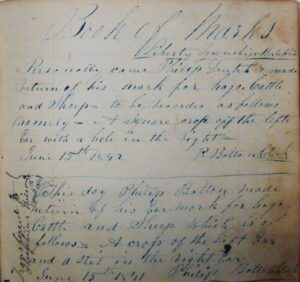 Book of Marks
Liberty Township
Personally came Philip & made
return of his mark for hogs Cattle
and Sheep to be recorded as follows
namely A Square crop off the left
Ear with a hole in the right
June 15th R Bolton Clk
This day Philip Bolton made
return of his Ear mark for hogs
Cattle and Sheep which is as
follows A crop of the left Ear
and a slit in the right Ear
June 15th 1841 Philip Bolton